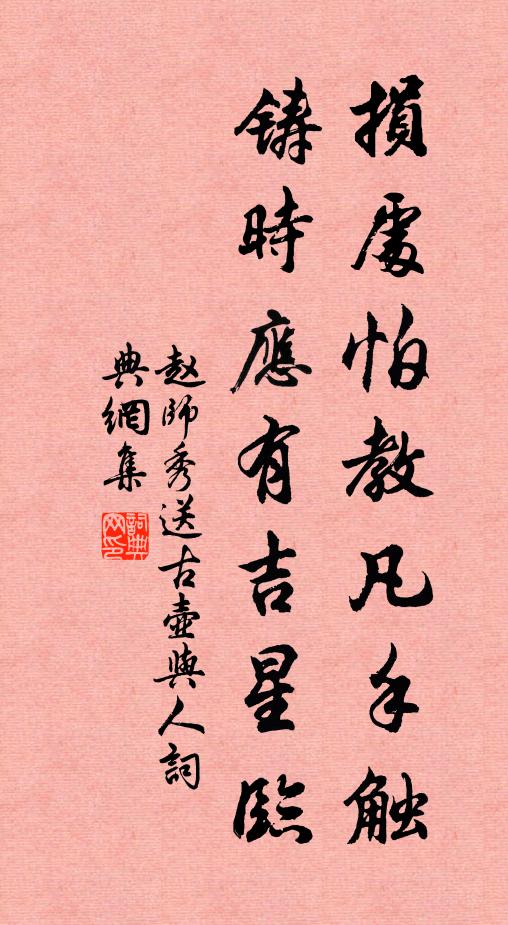 損處怕教凡手触
鑄時應有吉星臨
赵師秀送古壺與人詞
典網集
詞典网印